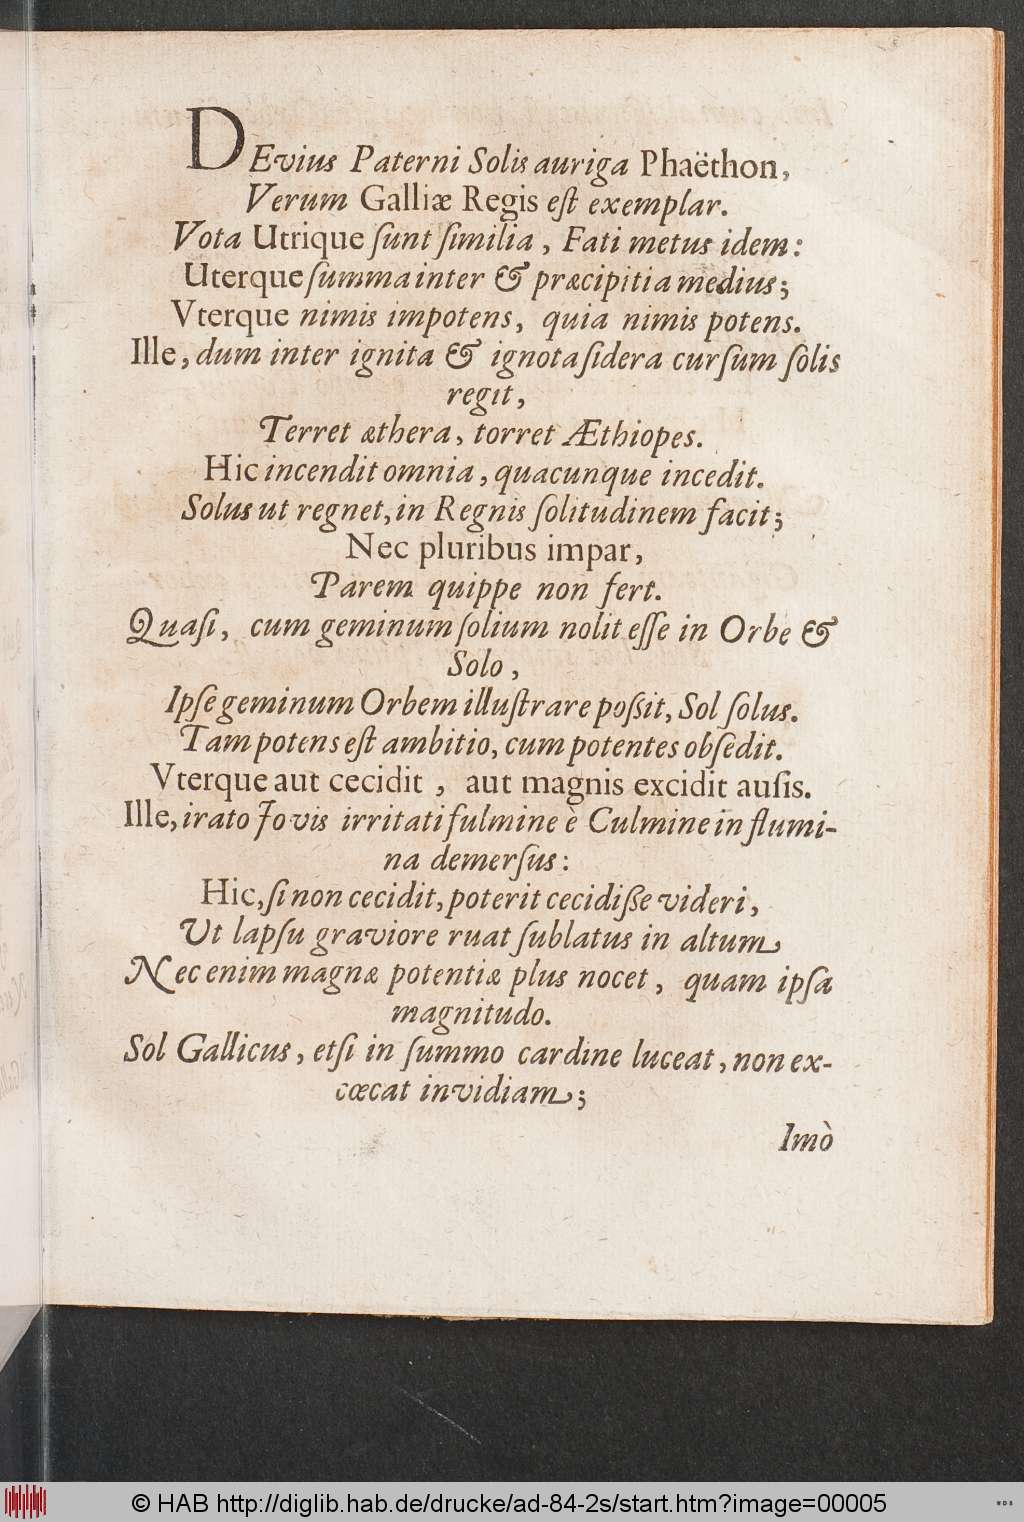 DEvius Paterni Solis auriga Phaëthon,
Verum Galliæ Regis eſt exemplar.
Vota Utrique ſunt ſimilia, Fati metus idem:
Uterque ſumma inter & præcipitia medius;
Vterque nimis impotens, quia nimis potens.
Ille, dum inter ignita & ignota ſidera curſum ſolis
regit,
Terret æthera, torret Æthiopes.
Hic incendit omnia, quacunque incedit.
Solus ut regnet, in Regnis ſolitudinem facit;
Nec pluribus impar,
Parem quippe non fert.
Quaſi, cum geminum ſolium nolit eſſe in Orbe &
Solo,
Ipſe geminum Orbem illuſtrare poſsit, Sol ſolus.
Tam potens eſt ambitio, cum potentes obſedit.
Vterque aut cecidit, aut magnis excidit auſis.
Ille, irato Jovis irritati fulmine è Culmine in flumi-
na demerſus:
Hic, ſi non cecidit, poterit cecidiſſe videri,
Ut lapſu graviore ruat ſublatus in altum
Nec enim magnæ potentiæ plus nocet, quam ipſa
magnitudo.
Sol Gallicus, etſi in ſummo cardine luceat, non ex-
cœcat invidiam;
Imò
© HAB http://diglib.hab.de/drucke/ad-84-2s/start.htm?image=00005